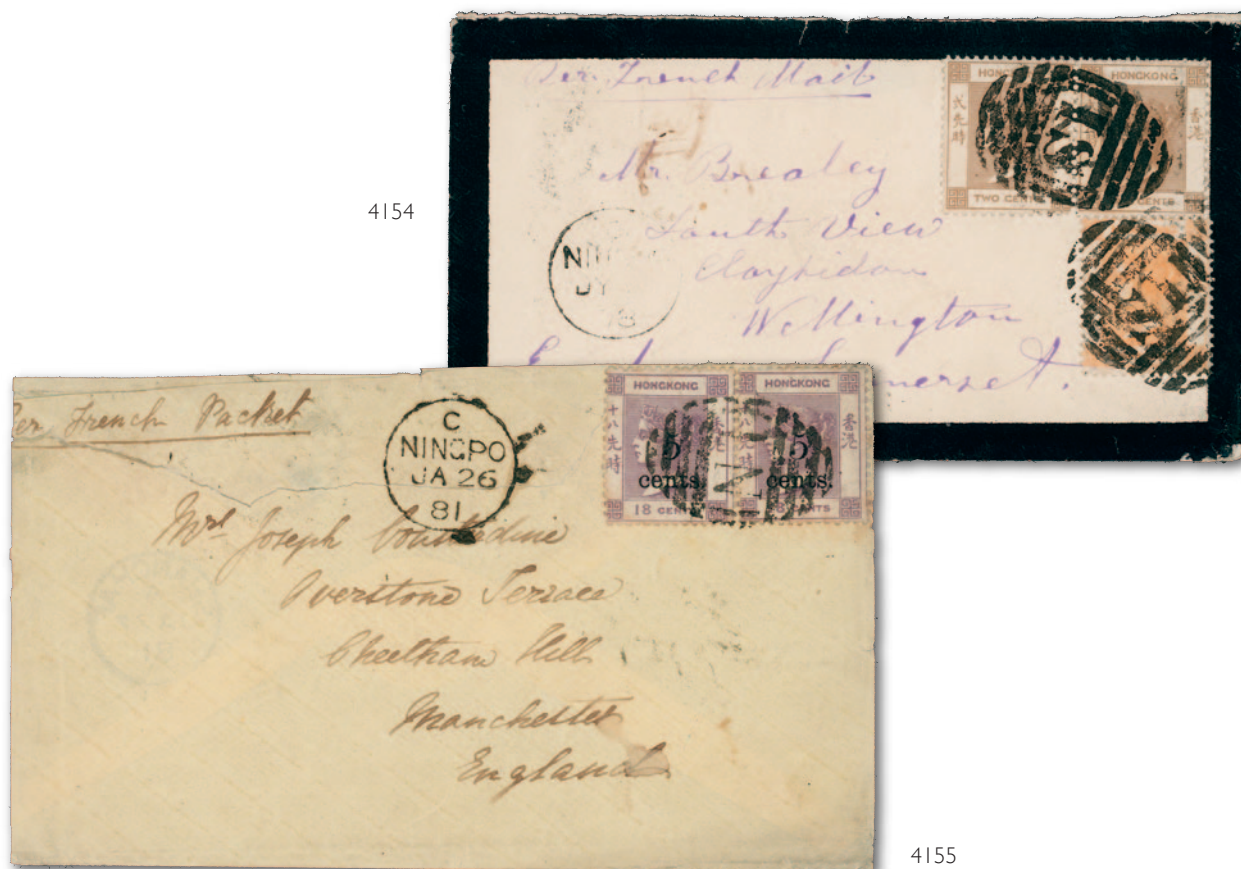 4154
Per French Mail
HONGKONG
HONGKONG
弍先時
香港
TWO CENTS
CENTS
Mr. Brealey
South View
Clayhidon
Wellington
Somerset.
JY
78
Per French Packet
C
NINGPO
JA 26
81
HONGKONG
HONGKONG
十八先時
香港
八先時
香港
5
cents.
5
cents.
18 CENTS
CENTS
N1
Mrs Joseph
Overstone Terrace
Cheetham Hill
Manchester
England
4155